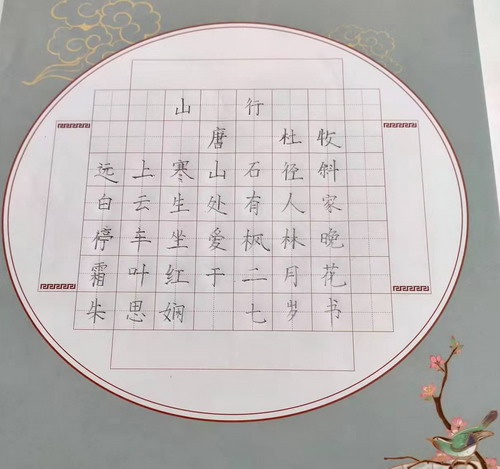 山行
唐 杜牧
远上寒山石径斜
白云生处有人家
停车坐爱枫林晚
霜叶红于二月花
朱思娴 七岁书